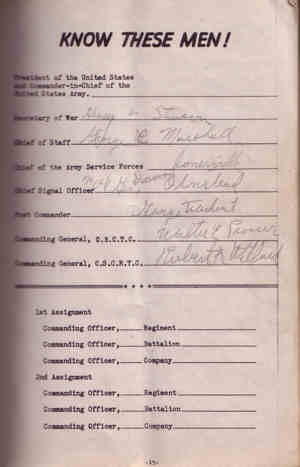 KNOW THESE MEN!
President of the United States
and Commander-in-Chief of the
United States Army.
Secretary of War Henry Stimson
Chief of Staff George C Marshall
Chief of the Army Service Forces Somervell
Chief Signal Officer Olmstead
Post Commander
Commanding General, E.S.C.T.C. Walter E Prosser
Commanding General, C.S.C.R.T.C. Robert
1st Assignment
Commanding Officer, Regiment
Commanding Officer, Battalion
Commanding Officer, Company
2nd Assignment
Commanding Officer, Regiment
Commanding Officer, Battalion
Commanding Officer, Company
-15-